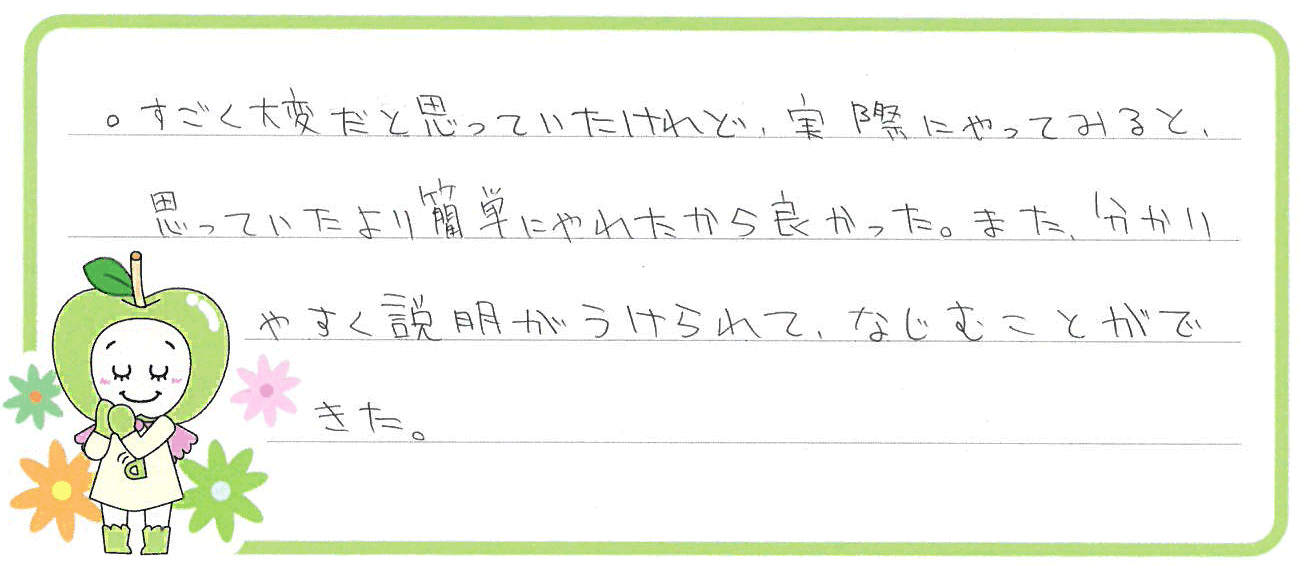 。すごく大変だと思っていたけれど、実際にやってみると、
思っていたより簡単にやれたから良かった。また、分かり
やすく説明がうけられて、なじむことがで
きた。